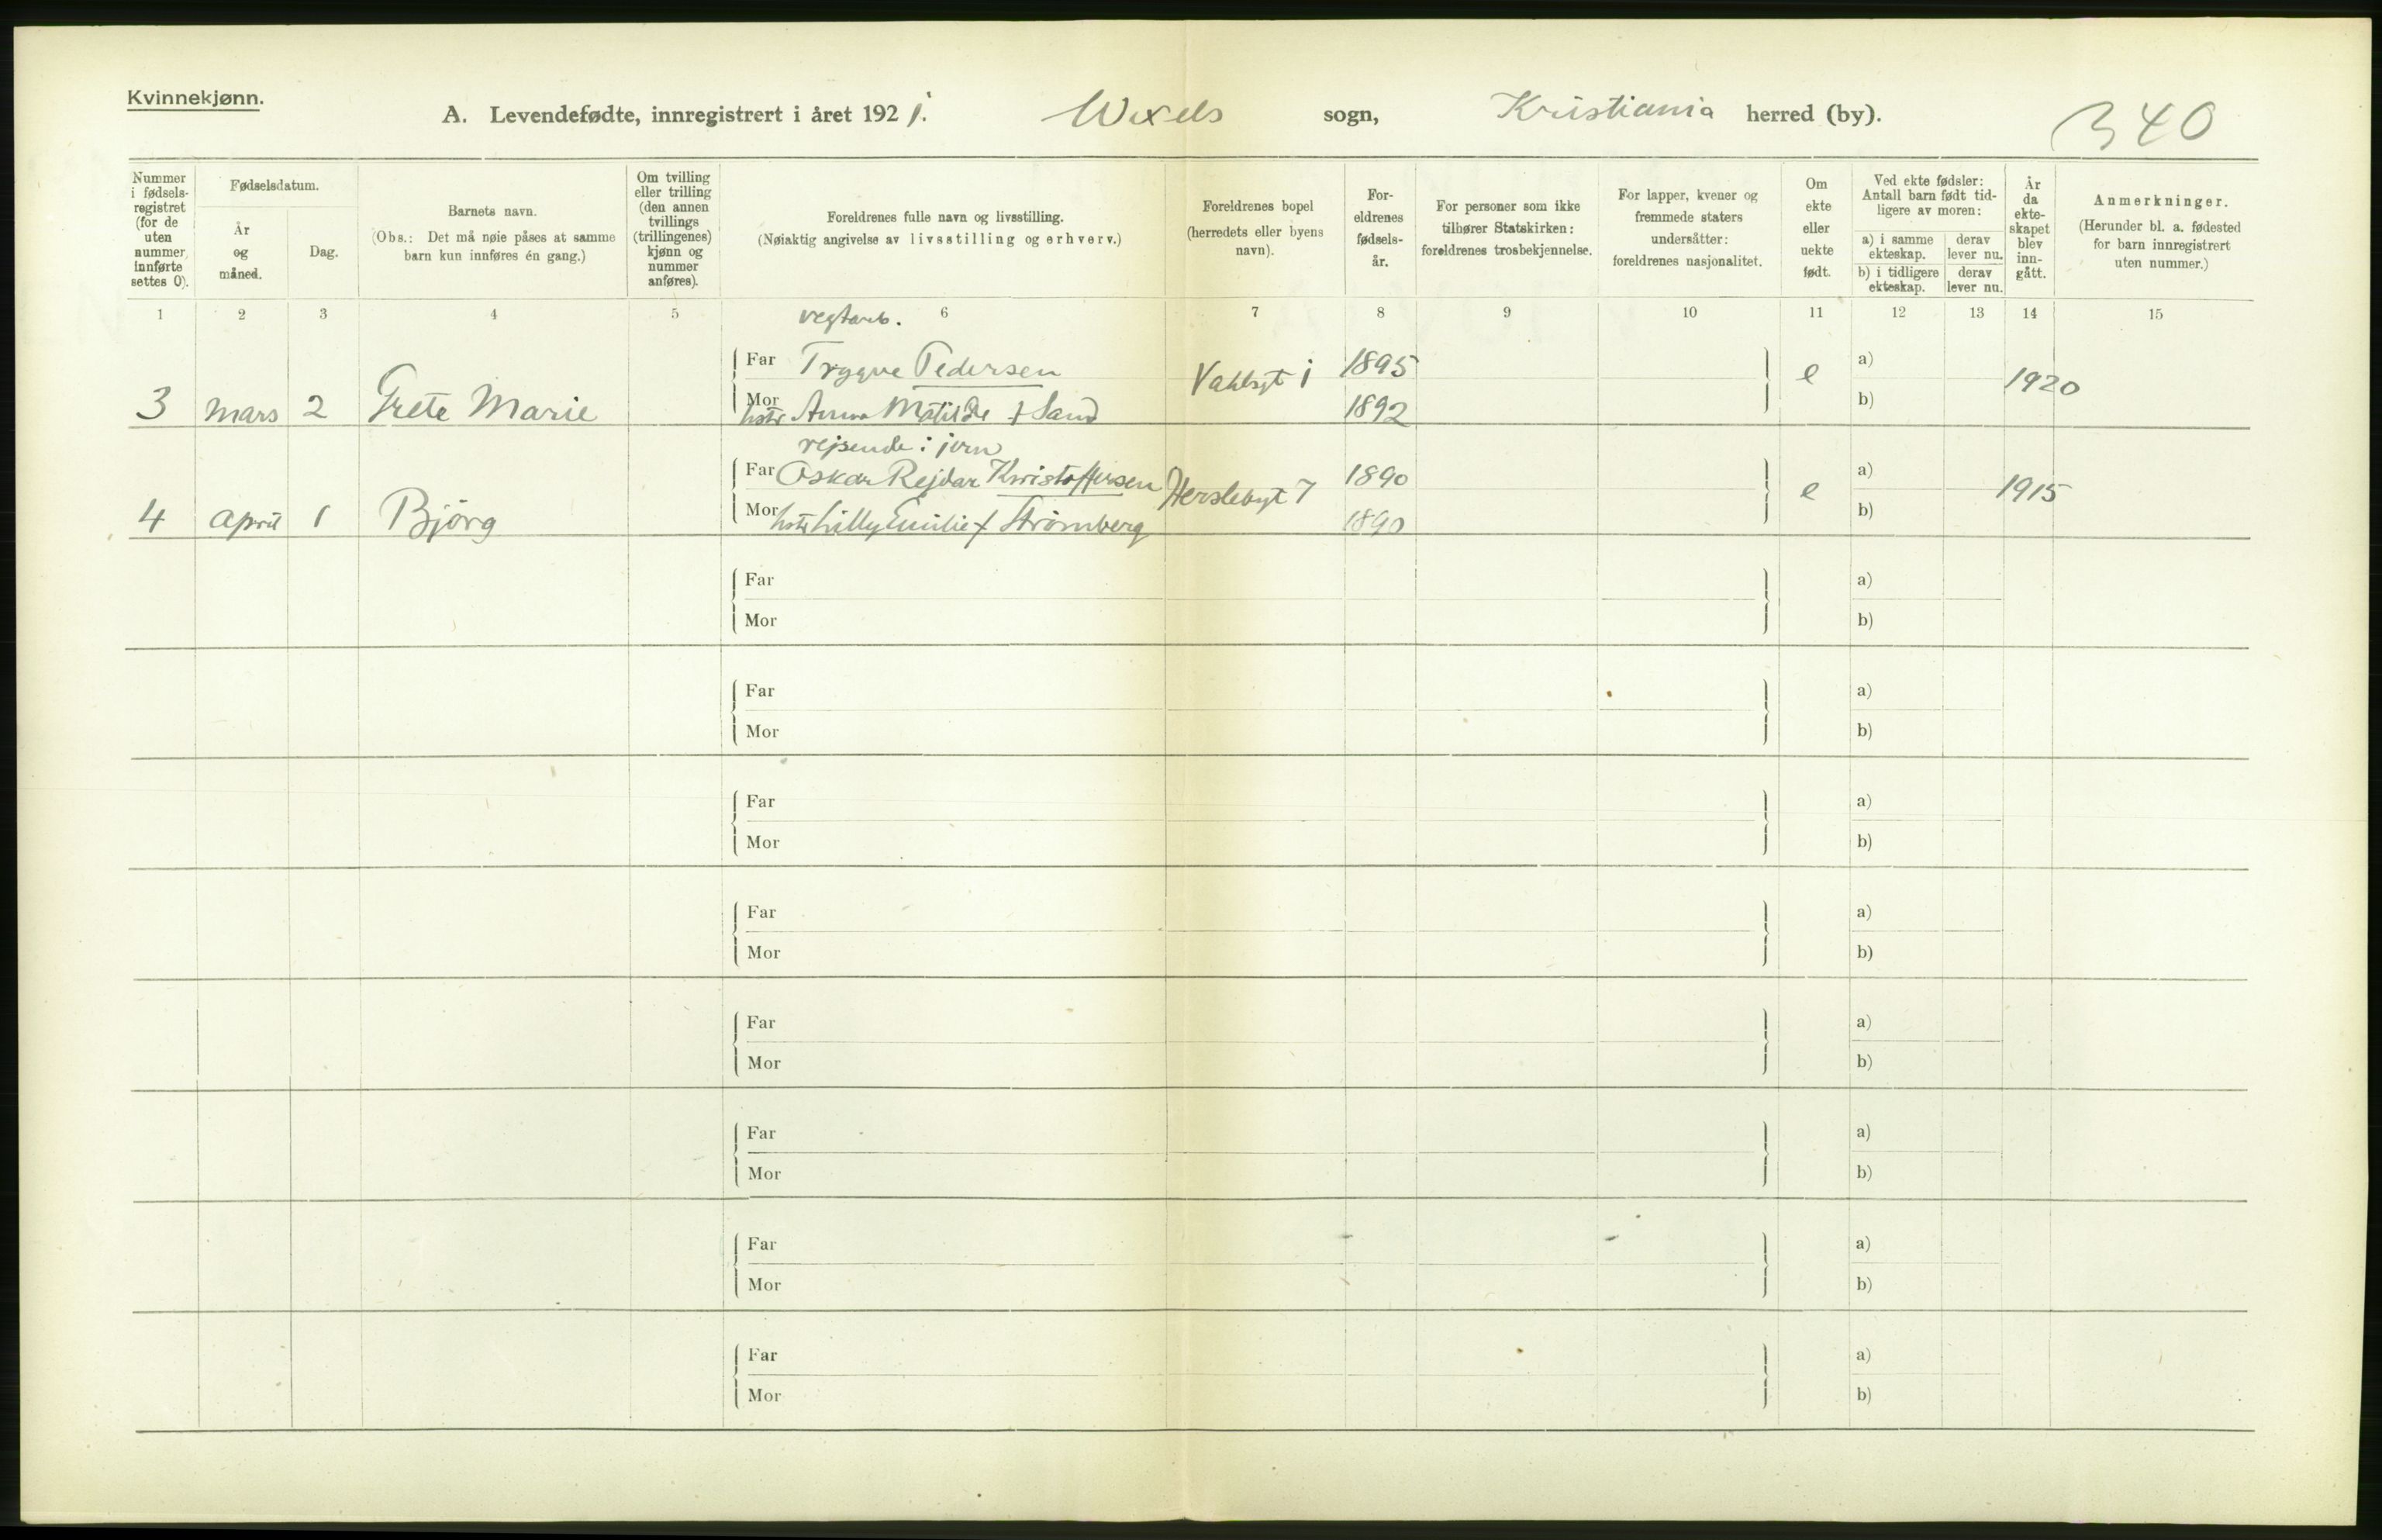 Kvinnekjønn.
A. Levendefødte, innregistrert i året 1921. Wexels sogn, Kristiania herred (by). 340
Nummer i fødselsregistret (for de uten nummer innførte settes 0).
Fødselsdatum.
År og måned.
Dag.
Barnets navn.
(Obs.: Det må nøie påses at samme barn kun innføres én gang.)
Om tvilling eller trilling (den annen tvillings (trillingenes) kjønn og nummer anføres).
Foreldrenes fulle navn og livsstilling.
(Nøiaktig angivelse av livsstilling og erhverv.)
Foreldrenes bopel (herredets eller byens navn).
Foreldrenes fødselsår.
For personer som ikke tilhører Statskirken: foreldrenes trosbekjennelse.
For lapper, kvener og fremmede staters undersåtter: foreldrenes nasjonalitet.
Om ekte eller uekte født.
Ved ekte fødsler: Antall barn født tidligere av moren:
a) i samme ekteskap. derav lever nu.
b) i tidligere ekteskap. derav lever nu.
År da ekteskapet blev inngått.
Anmerkninger.
(Herunder bl. a. fødested for barn innregistrert uten nummer.)
1 2 3 4 5 6 7 8 9 10 11 12 13 14 15
vegtarb.
Far Trygve Pedersen Vahlsgt 1 1895 e a) 1920
3 mars 2 Grete Marie Mor hstr Anna Matilde f Sand 1892 b)
rejsende i jern
Far Oskar Rejdar Kristoffersen Herslebsgt 7 1890 e a) 1915
4 april 1 Bjørg Mor hstr Lilly Emilie f Strömberg 1890 b)
Far a)
Mor b)
Far a)
Mor b)
Far a)
Mor b)
Far a)
Mor b)
Far a)
Mor b)
Far a)
Mor b)
Far a)
Mor b)
Far a)
Mor b)